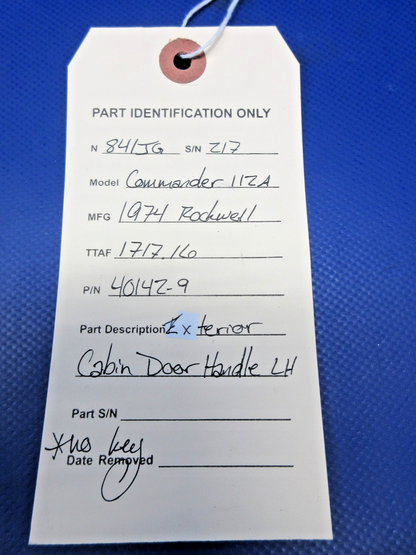 PART IDENTIFICATION ONLY
N 841JG S/N 217
Model Commander 112A
MFG 1974 Rockwell
TTAF 1717.16
P/N 40142-9
Part Description Exterior
Cabin Door Handle LH
Part S/N
*no key
Date Removed